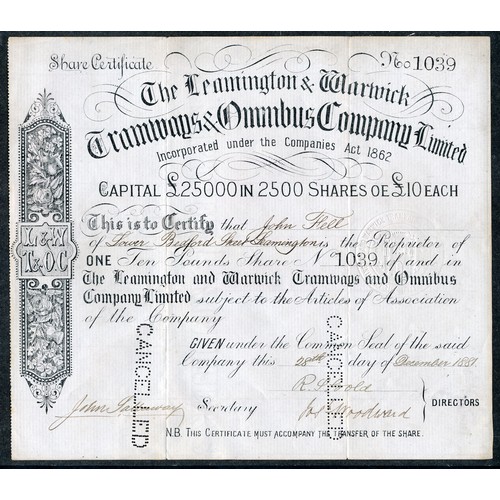 Share Certificate No 1039
The Leamington & Warwick
Tramways & Omnibus Company Limited
Incorporated under the Companies Act 1862
CAPITAL £25000 IN 2500 SHARES OF £10 EACH
L & W
T. & O. C
This is to Certify that John Fell
of Lower Bedford Street Leamington is the Proprietor of
ONE Ten Pounds Share No 1039 of and in
THE LEAMINGTON AND WARWICK TRAMWAYS AND OMNIBUS
COMPANY LIMITED subject to the Articles of Association
of the Company
GIVEN under the Common Seal of the said
Company this 28th day of December 1881
DIRECTORS
John Secretary Woodward
N.B. THIS CERTIFICATE MUST ACCOMPANY THE TRANSFER OF THE SHARE.
CANCELLED
CANCELLED